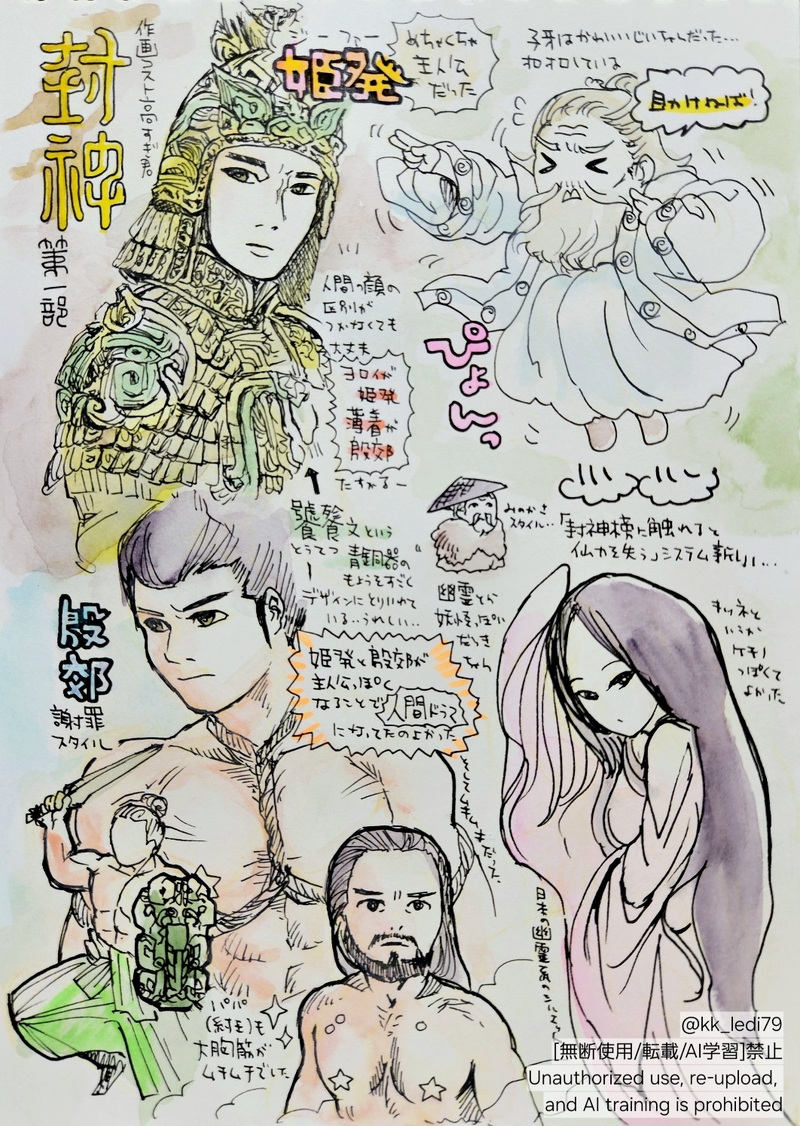 封神
第一部
作画コスト高すぎ君
ジーファー
姫発
めちゃくちゃ
主人公
だった
子牙はかわいいじいちゃんだった…
オロオロしている
助けねば!
人間の顔の
区別が
つかなくても
ヨロイが
姫発
薄着が
殷郊
たすかるー
ぴょんっ
みのかさ
スタイル…
「封神榜に触れると
仙力を失う」システム斬り…
饕餮文という
とうてつ
青銅器の
もようをすごく
デザインにとりいれて
いる…うれしい…
幽霊とか
妖怪っぽい
だっき
ちゃん
キツネと
いうか
ケモノ
っぽくて
よかった
殷郊
謝罪
スタイル
姫発と殷郊が
主人公っぽく
なることで人間ドラマ
になってたのよかった
そしてムキムキだった
パパ
(紂王)も
大胸筋が
ムチムチでした
日本の幽霊画の
@kk_ledi79
[無断使用/転載/AI学習]禁止
Unauthorized use, re-upload,
and AI training is prohibited